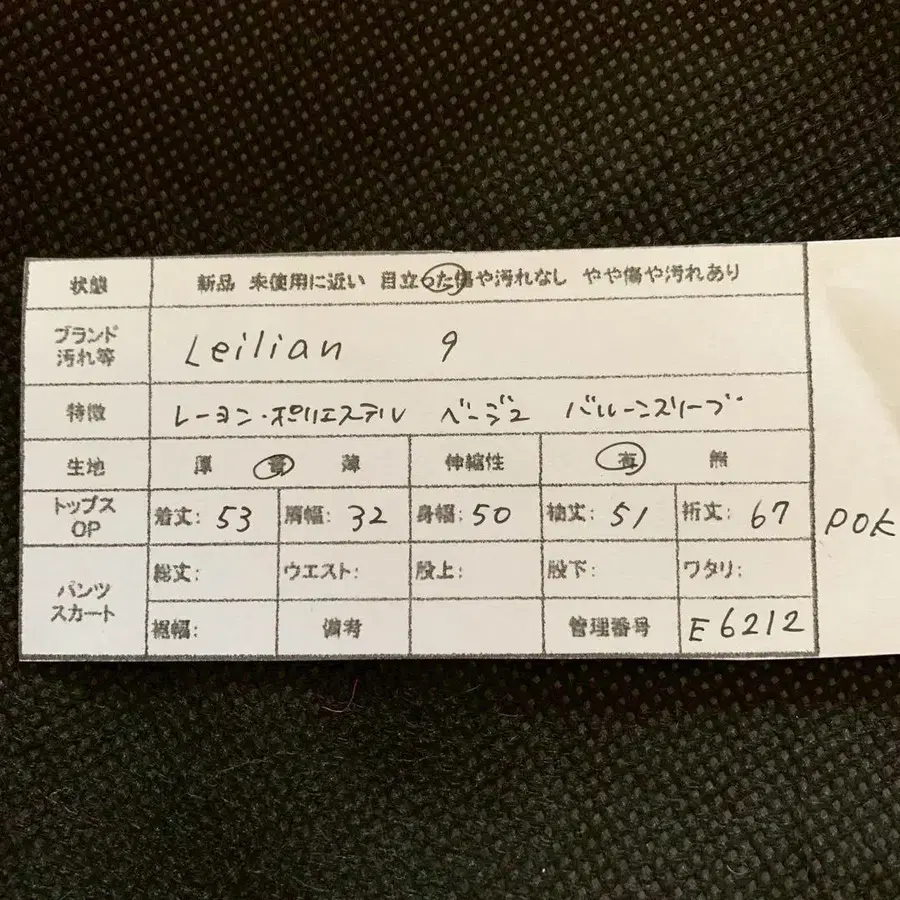 状態 新品 未使用に近い 目立った傷や汚れなし やや傷や汚れあり
ブランド
汚れ等 Leilian 9
特徴 レーヨン・ポリエステル ベージュ バルーンスリーブ
生地 厚 普 薄 伸縮性 有 無
トップス
OP 着丈: 53 肩幅: 32 身幅: 50 袖丈: 51 裄丈: 67 POK
パンツ
スカート 総丈: ウエスト: 股上: 股下: ワタリ:
裾幅: 備考 管理番号 E6212